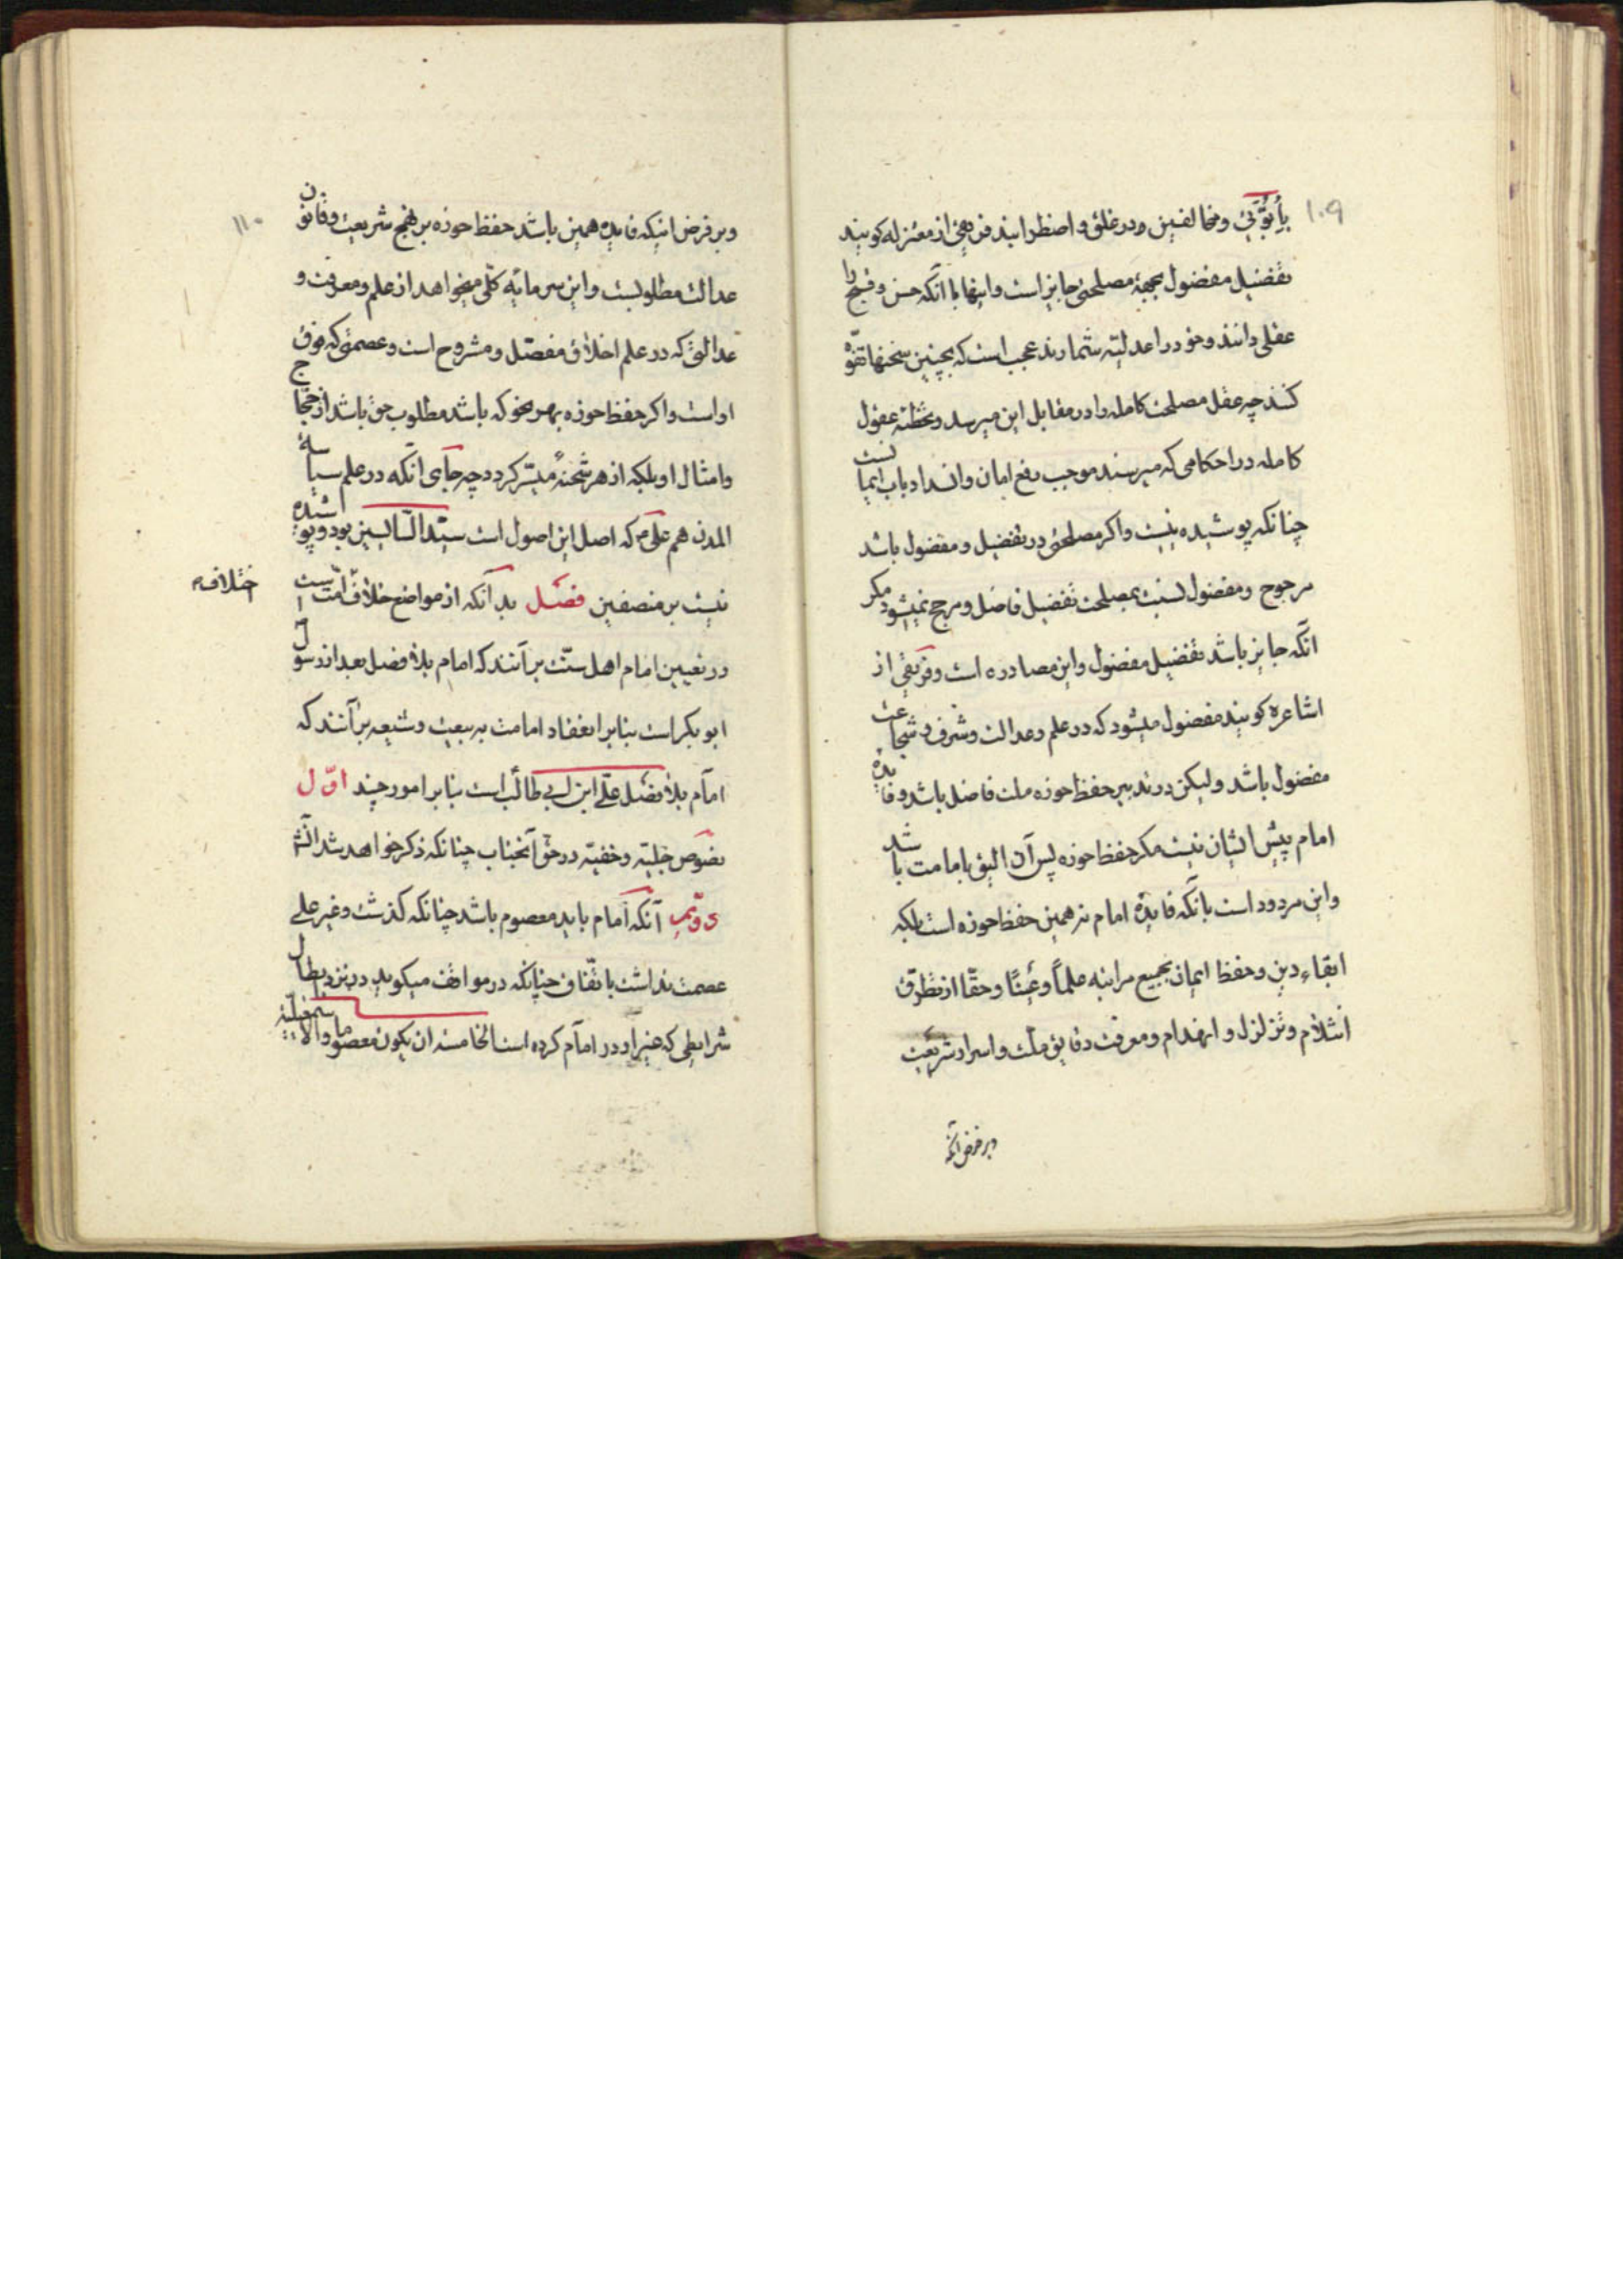 ۱۰۹
ومخالفین در غلق و اضطرابند فرقهٔ از معتزله کویند
تفضیل مفضول بجهة مصلحتی جایز است واینها با آنکه حسن وقبح را
عقلی دانند وخود را عدلیّه شمارند عجب است که بچنین سخنها تفوّه
کنند چه عقل مصلحت کامله را در مقابل این میرسد وتخطئه عقول
کامله در احکامی که میرسند موجب رفع امان وانسداد باب ایما نست
چنانکه پوشیده نیست واکر مصلحتی در تفضیل ومفضول باشد
مرجوح ومفضول نسبت بمصلحت تفضیل فاضل ومرجح نمیشود مکر
آنکه جایز باشد تفضیل مفضول واین مصادره است وفریقی از
اشاعره کویند مفضول میشود که در علم وعدالت وشرف وشجاعت
مفضول باشد ولیکن در تدبیر حفظ حوزه ملت فاضل باشد وفایدهٔ
امام پیش ایشان نیست مکر حفظ حوزه پس آن الیق بامامت باشد
واین مردود است بانکه فایدهٔ امام نه همین حفظ حوزه است بلکه
ابقاء دین وحفظ ایمان بجمیع مراتبه علماً وعیناً وحقّا از تطرّق
انثلام وتزلزل وانهدام ومعرفت دقایق ملّت واسرار شریعت
وبر فرض آنکه
۱۱۰
وبر فرض اینکه فایده همین باشد حفظ حوزه بر نهج شریعت وقانون
عدالت مطلوبست واین سرمایهٔ کلّی میخواهد از علم ومعرفت و
عدالتی که در علم اخلاق مفصّل ومشروح است وعصمتی که فوق
او است واکر حفظ حوزه بهر نحو که باشد مطلوب حق باشد از حجّاج
وامثال او بلکه از هر شحنهٔ میسّر کردد چه جای آنکه در علم سیاسة
المدن هم علی که اصل این اصول است سیّد السّایسین بود وپوشیده
نیست بر منصفین فصل بدآنکه از مواضع خلاف امّت است
اختلاف
در تعیین امام اهل سنّت برآنند که امام بلا فصل بعد از رسول
ابو بکر است بنابر انعقاد امامت به بیعت وشیعه برآنند که
امام بلا فصل علی ابن ابی طالب است بنابر امور چند اوّل
نصوص جلیّه وخفیّه در حق آنجناب چنانکه ذکر خواهد شد انشٓ
دویّم آنکه امام باید معصوم باشد چنانکه کذشت وغیر علی
عصمت نداشت باتّفاق چنانکه در مواقف میکوید در نزد ابطال
شرایطی که غیر او در امام کرده است الخامسة ان یکون معصوما